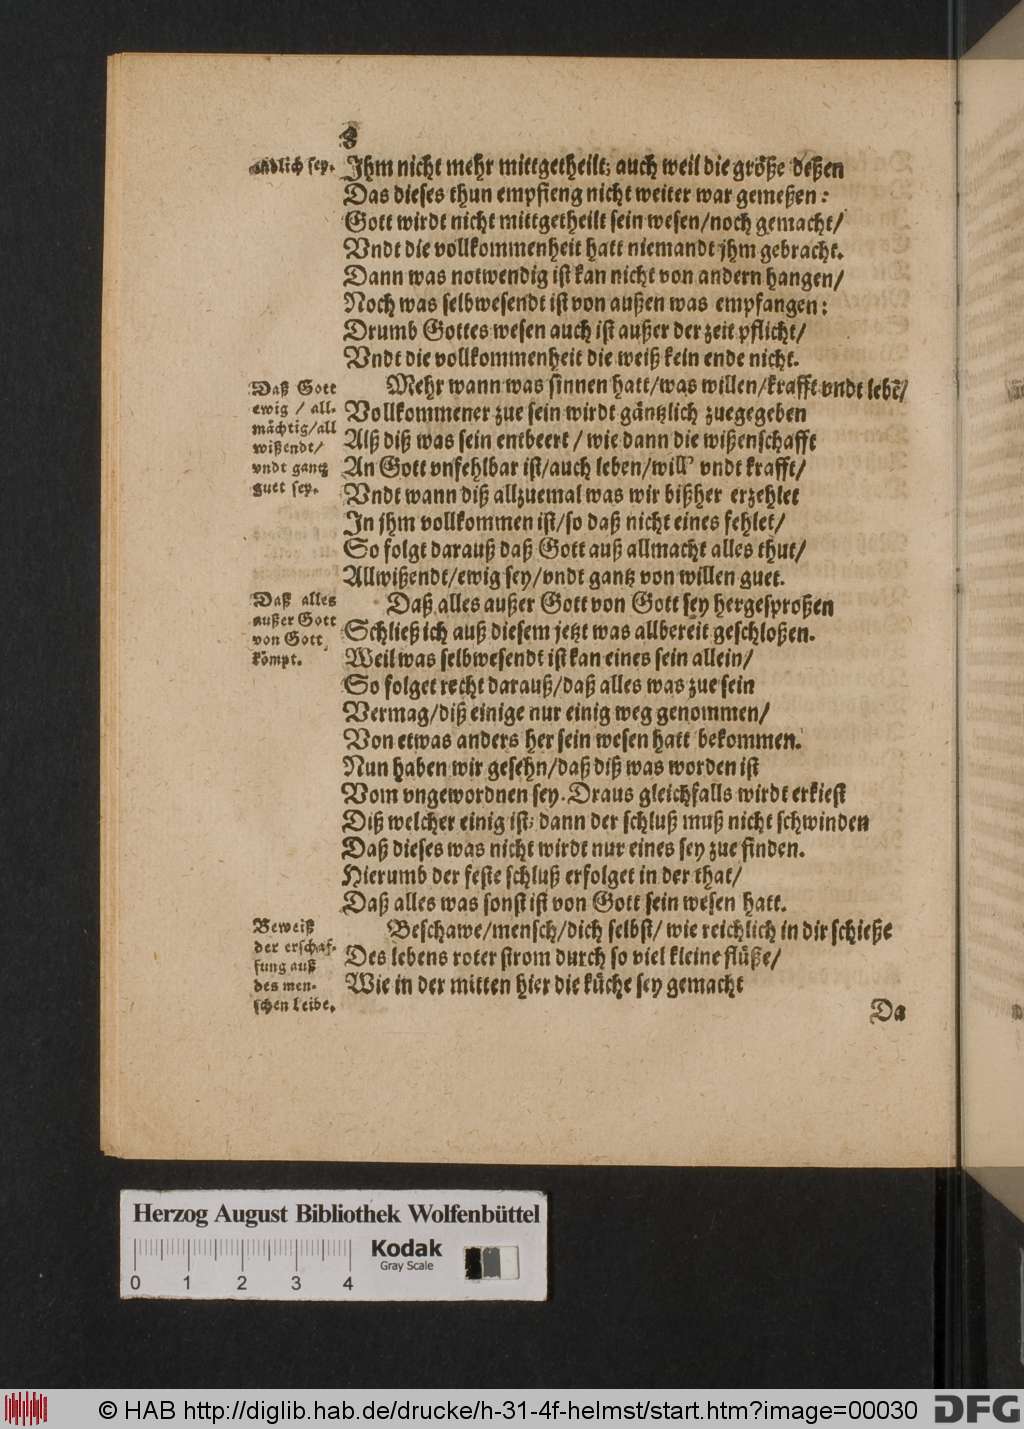 8
endlich sey.
Ihm nicht mehr mittgetheilt; auch weil die größe deßen
Das dieses thun empfieng nicht weiter war gemeßen:
Gott wirdt nicht mittgetheilt sein wesen/noch gemacht/
Vndt die vollkommenheit hatt niemandt jhm gebracht.
Dann was notwendig ist kan nicht von andern hangen/
Noch was selbwesendt ist von außen was empfangen:
Drumb Gottes wesen auch ist außer der zeit pflicht/
Vndt die vollkommenheit die weiß kein ende nicht.
Daß Gott
ewig / all-
mächtig/all
wißendt/
vndt gantz
guet sey.
Mehr wann was sinnen hatt/was willen/krafft vndt lebē/
Vollkommener zue sein wirdt gäntzlich zuegegeben
Alß diß was sein entbeert / wie dann die wißenschafft
An Gott vnfehlbar ist/auch leben/will' vndt krafft/
Vndt wann diß allzuemal was wir bißher erzehlet
In jhm vollkommen ist/so daß nicht eines fehlet/
So folgt darauß daß Gott auß allmacht alles thut/
Allwißendt/ewig sey/vndt gantz von willen guet.
Daß alles
außer Gott
von Gott
kömpt.
Daß alles außer Gott von Gott sey hergesproßen
Schließ ich auß diesem jetzt was allbereit geschloßen.
Weil was selbwesendt ist kan eines sein allein/
So folget recht darauß/daß alles was zue sein
Vermag/diß einige nur einig weg genommen/
Von etwas anders her sein wesen hatt bekommen.
Nun haben wir gesehn/daß diß was worden ist
Vom vngewordnen sey. Draus gleichfalls wirdt erkiest
Diß welcher einig ist; dann der schluß muß nicht schwinden
Daß dieses was nicht wirdt nur eines sey zue finden.
Hierumb der feste schluß erfolget in der that/
Daß alles was sonst ist von Gott sein wesen hatt.
Beweiß
der erschaf-
fung auß
des men-
schen Leibe.
Beschawe/mensch/dich selbst/ wie reichlich in dir schieße
Des lebens roter strom durch so viel kleine flüße/
Wie in der mitten hier die küche sey gemacht
Da
Herzog August Bibliothek Wolfenbüttel
Kodak
Gray Scale
0 1 2 3 4
© HAB http://diglib.hab.de/drucke/h-31-4f-helmst/start.htm?image=00030
DFG